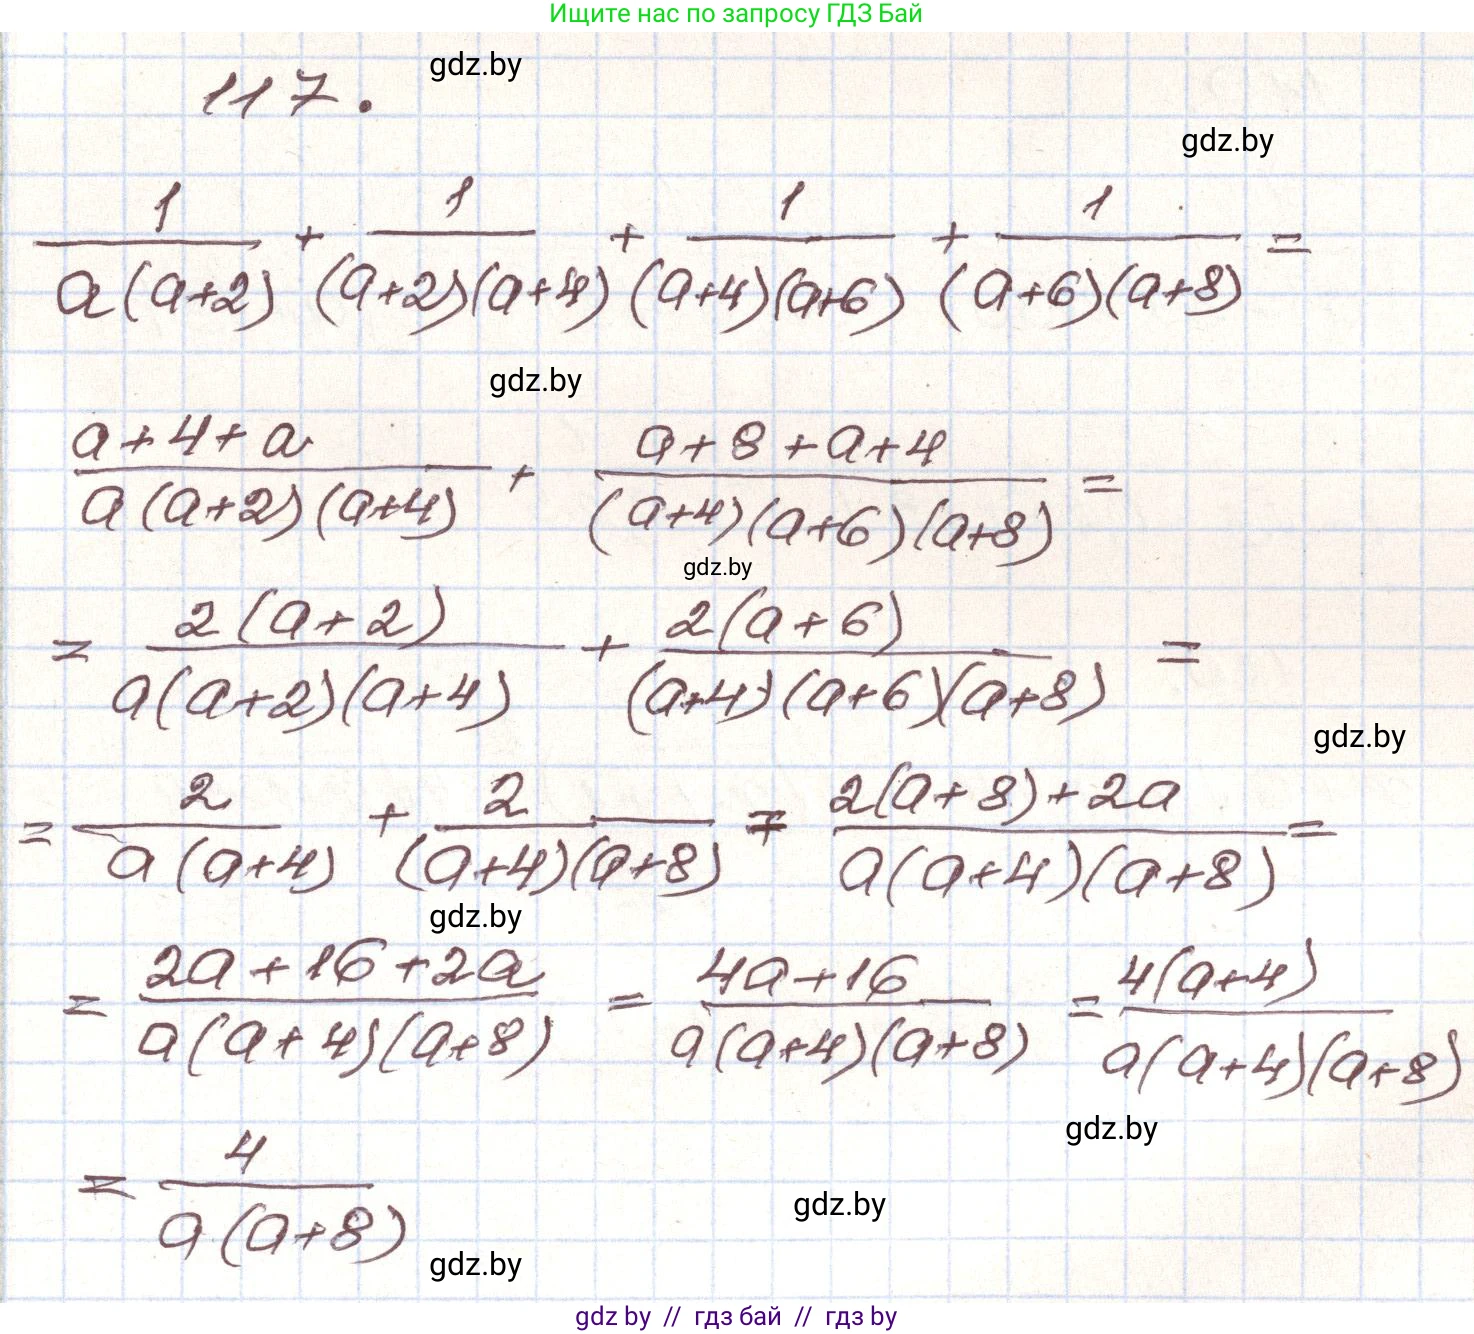 Ищите нас по запросу ГДЗ Бай
gdz.by
117.
gdz.by
1/(a(a+2)) + 1/((a+2)(a+4)) + 1/((a+4)(a+6)) + 1/((a+6)(a+8)) =
gdz.by
(a+4+a)/(a(a+2)(a+4)) + (a+8+a+4)/((a+4)(a+6)(a+8)) =
gdz.by
= 2(a+2)/(a(a+2)(a+4)) + 2(a+6)/((a+4)(a+6)(a+8)) =
gdz.by
= 2/(a(a+4)) + 2/((a+4)(a+8)) = (2(a+8)+2a)/(a(a+4)(a+8)) =
gdz.by
= (2a+16+2a)/(a(a+4)(a+8)) = (4a+16)/(a(a+4)(a+8)) = 4(a+4)/(a(a+4)(a+8))
gdz.by
= 4/(a(a+8))
gdz.by
gdz.by
gdz by // гдз бай // гдз by